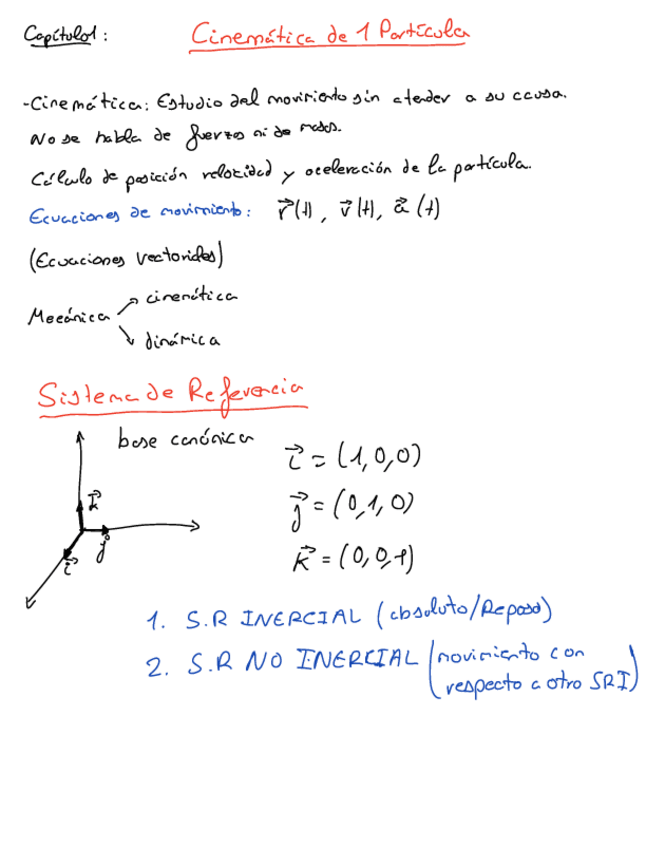 Capítulo1: Cinemática de 1 Partícula
-Cinemática: Estudio del movimiento sin atender a su causa.
No se habla de fuerzas ni de masas.
Cálculo de posición velocidad y aceleración de la partícula.
Ecuaciones de movimiento: r⃗(t), v⃗(t), a⃗(t)
(Ecuaciones vectoriales)
Mecánica
cinemática
dinámica
Sistema de Referencia
base canónica
i⃗ = (1,0,0)
j⃗ = (0,1,0)
k⃗ = (0,0,1)
k⃗
j⃗
i⃗
1. S.R INERCIAL (absoluto/Reposo)
2. S.R NO INERCIAL (movimiento con
respecto a otro SRI)